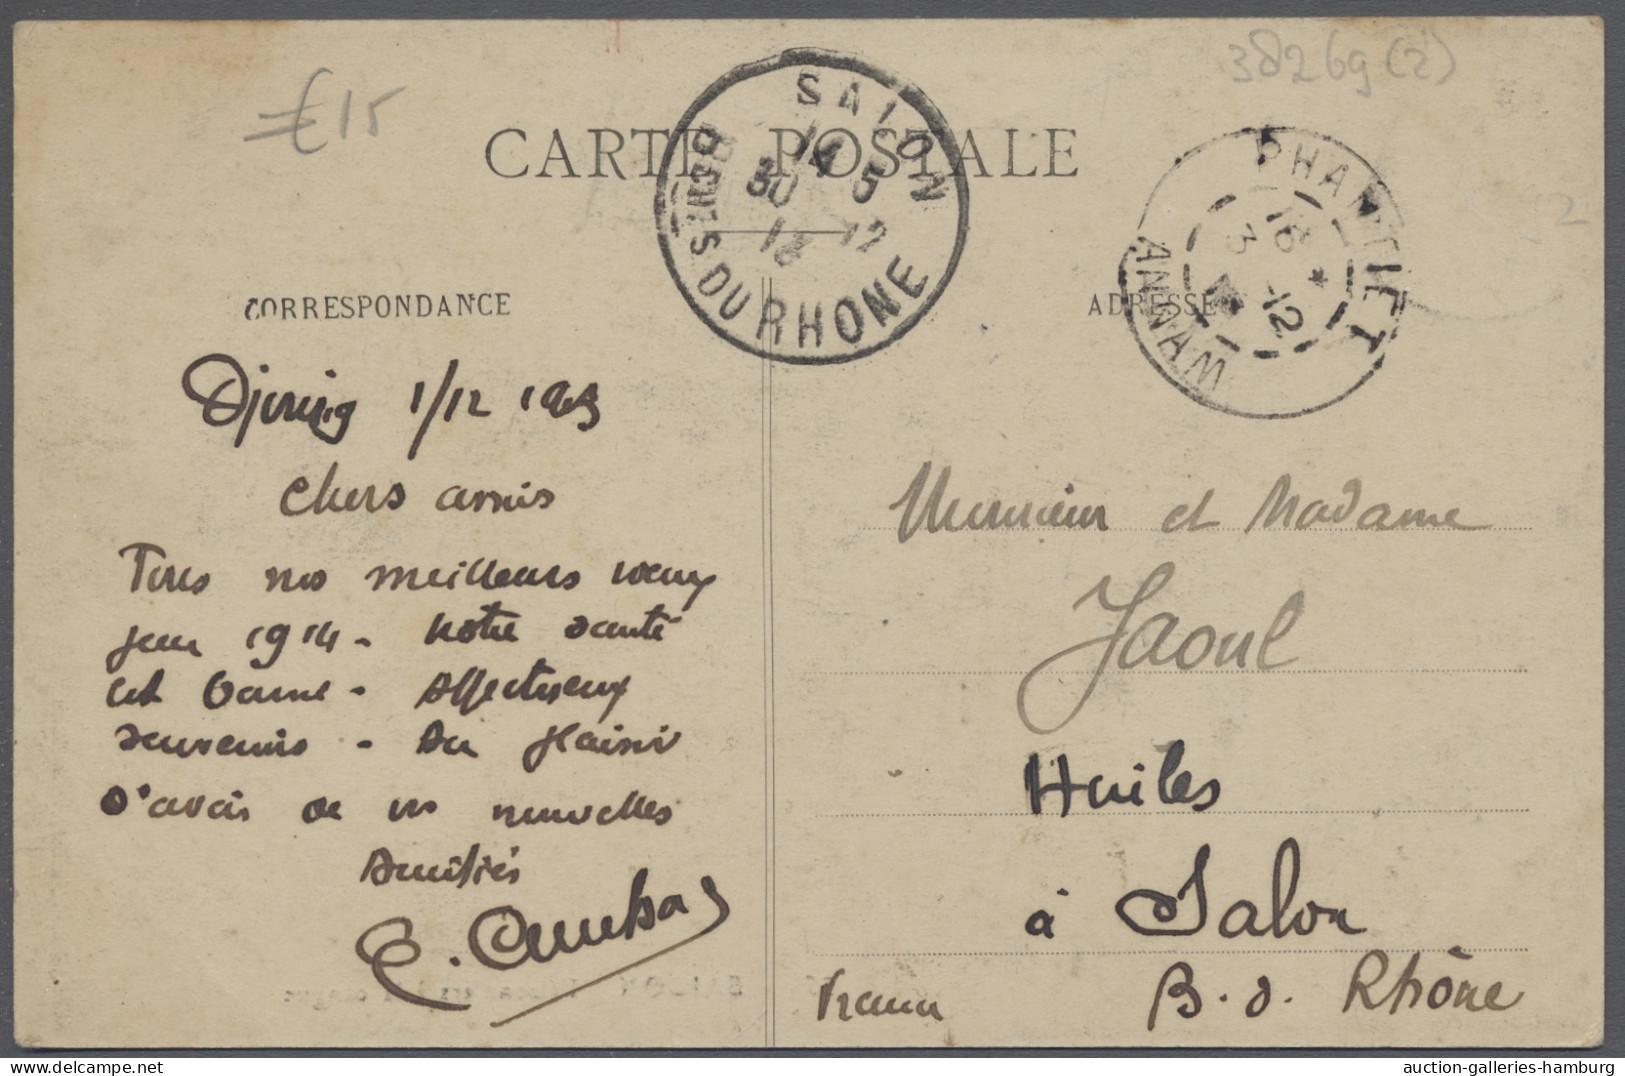 €15
38269(2)
CARTE POSTALE
SALON
14 5
30
12
BCHES DU RHONE
PHANTIET
16
3 -12
ANNAM
CORRESPONDANCE
ADRESSE
Djiring 1/12 1913
Chers amis
Tous nos meilleurs vœux
pour 1914 - Notre santé
est bonne - Affectueux
souvenirs - Au plaisir
d'avoir de vos nouvelles
Amitiés
Monsieur et Madame
Jaoul
Huiles
à Salon
B. d. Rhône
France
auction-galleries-hamburg